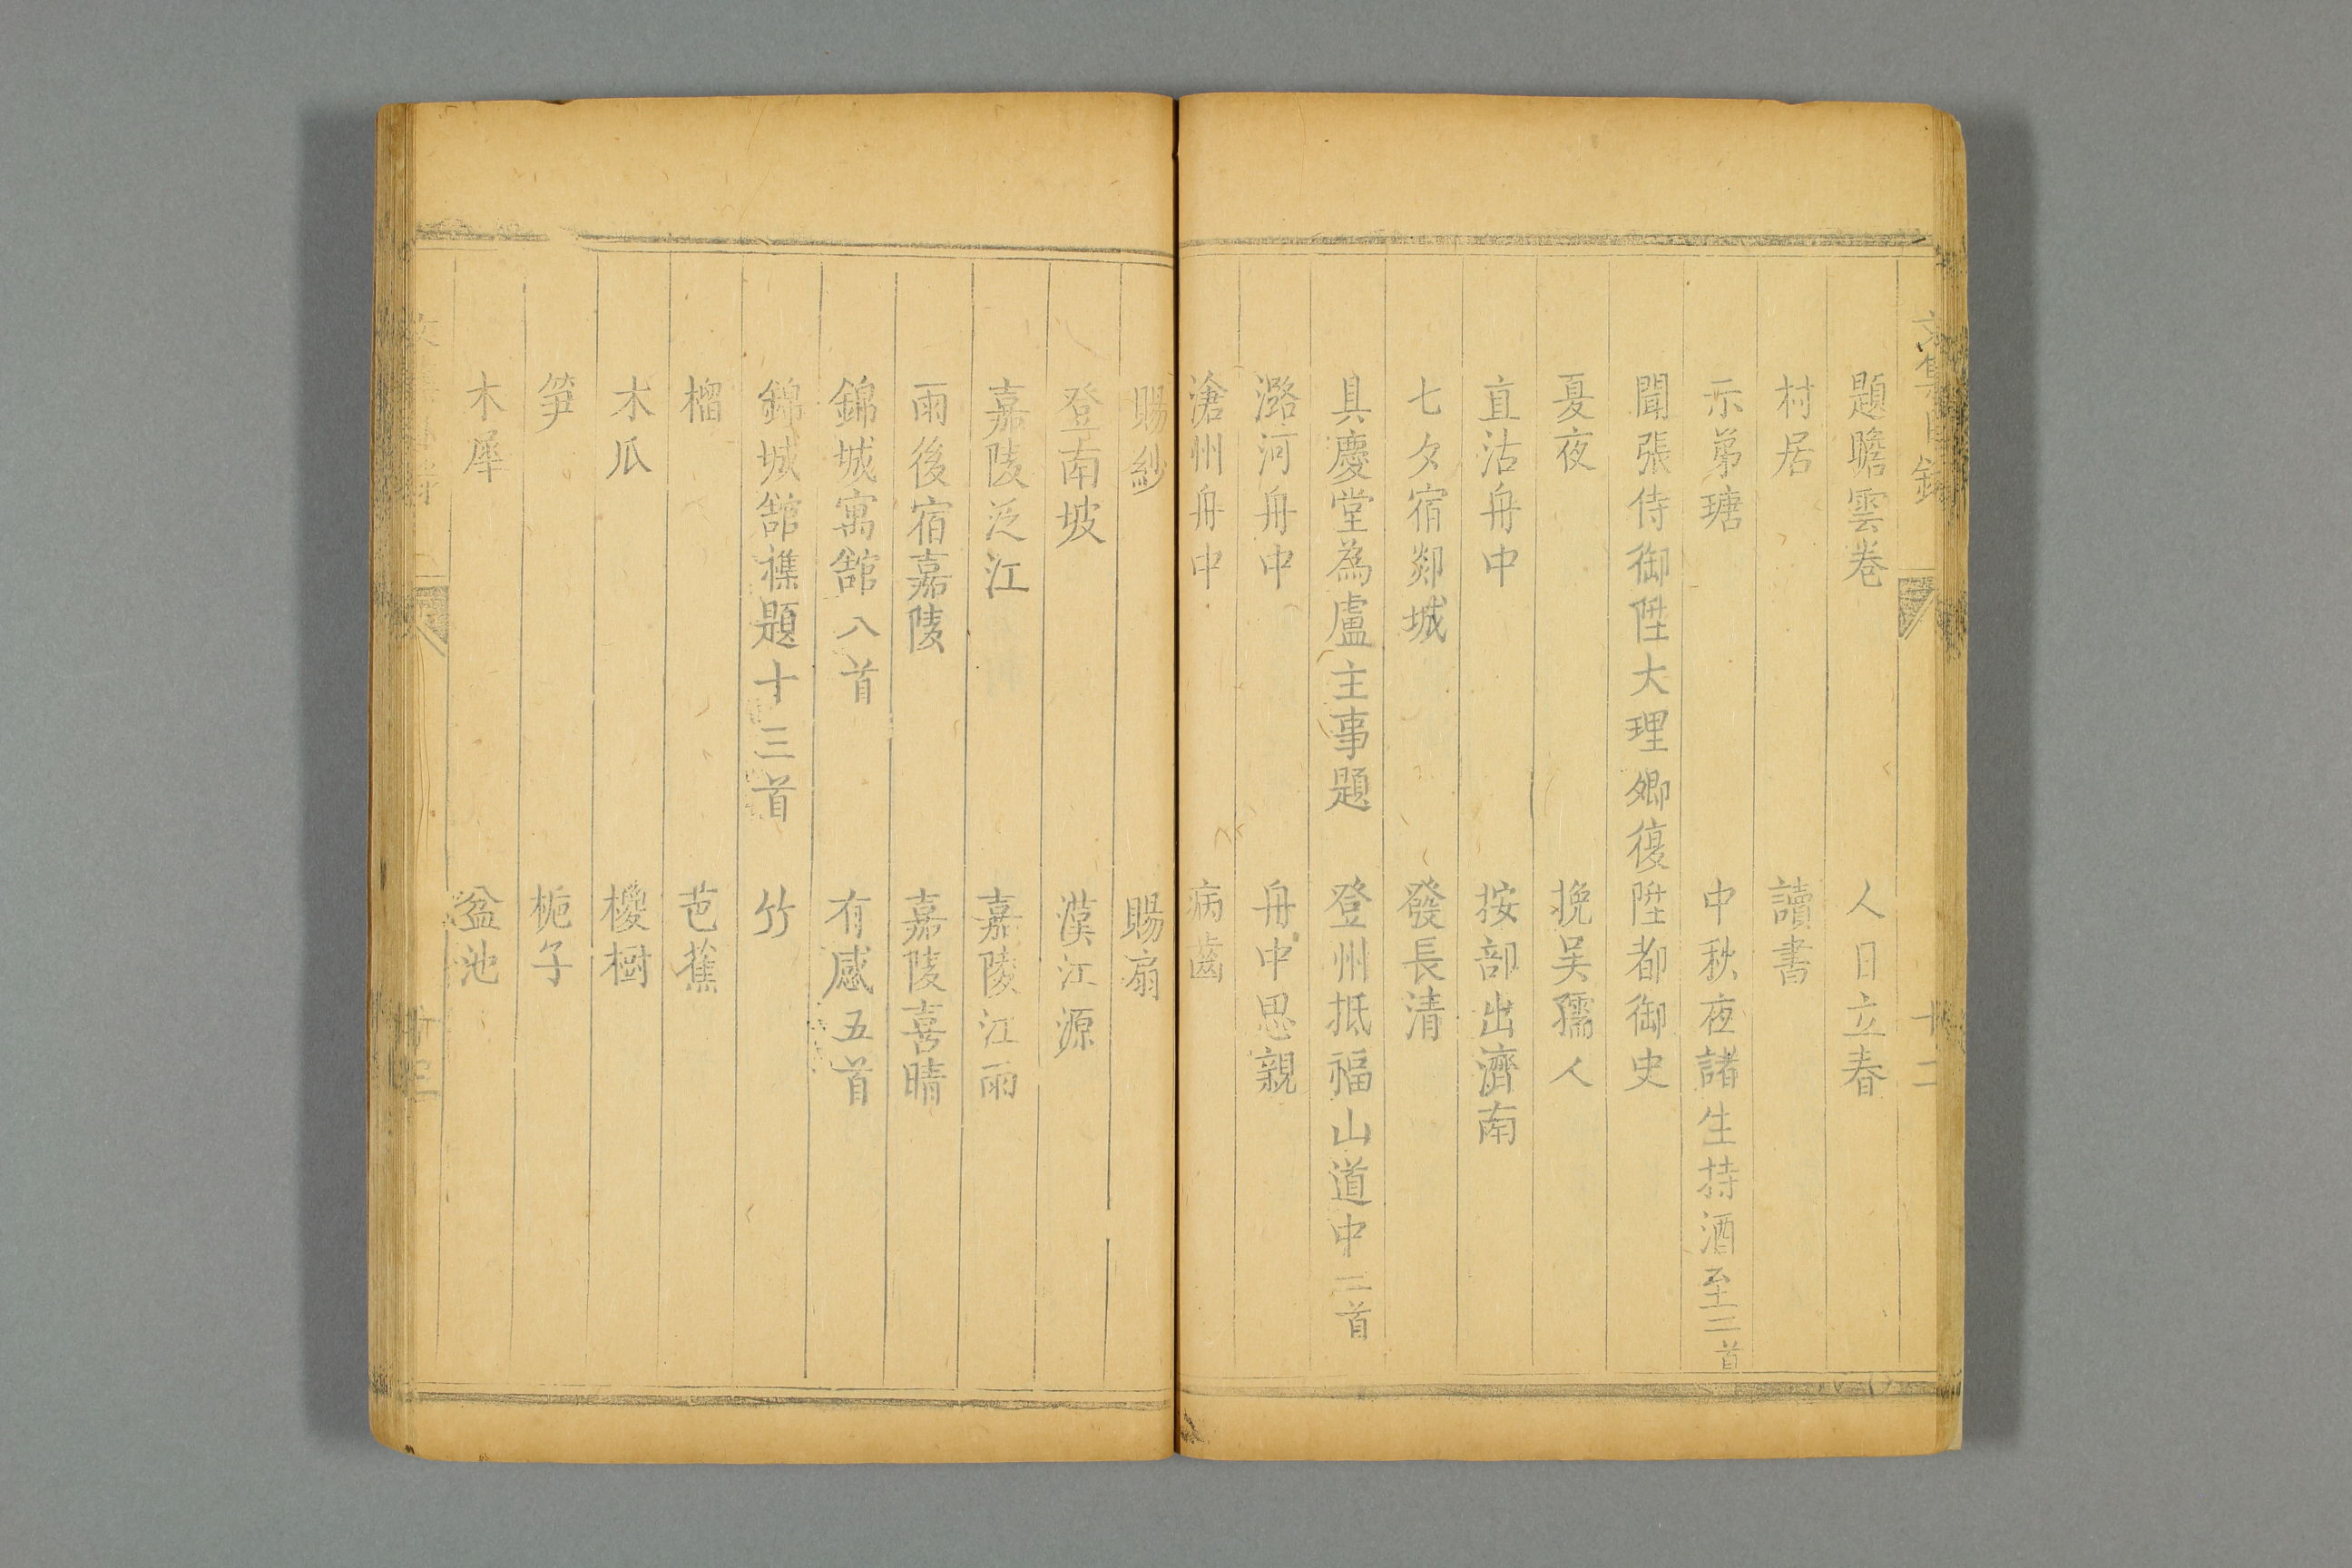 文集目錄
十二
題瞻雲卷　人日立春
村居　讀書
示弟瑭　中秋夜諸生持酒至二首
聞張侍御陞大理卿復陞都御史
夏夜　挽吴孺人
直沽舟中　按部出濟南
七夕宿郯城　發長清
具慶堂為盧主事題　登州抵福山道中二首
潞河舟中　舟中思親
滄州舟中　病齒
賜紗　賜扇
登南坡　漢江源
嘉陵泛江　嘉陵江雨
雨後宿嘉陵　嘉陵喜晴
錦城寓舘八首　有感五首
錦城舘襍題十三首　竹
榴　芭蕉
木瓜　樹
笋　栀子
木犀　盆池